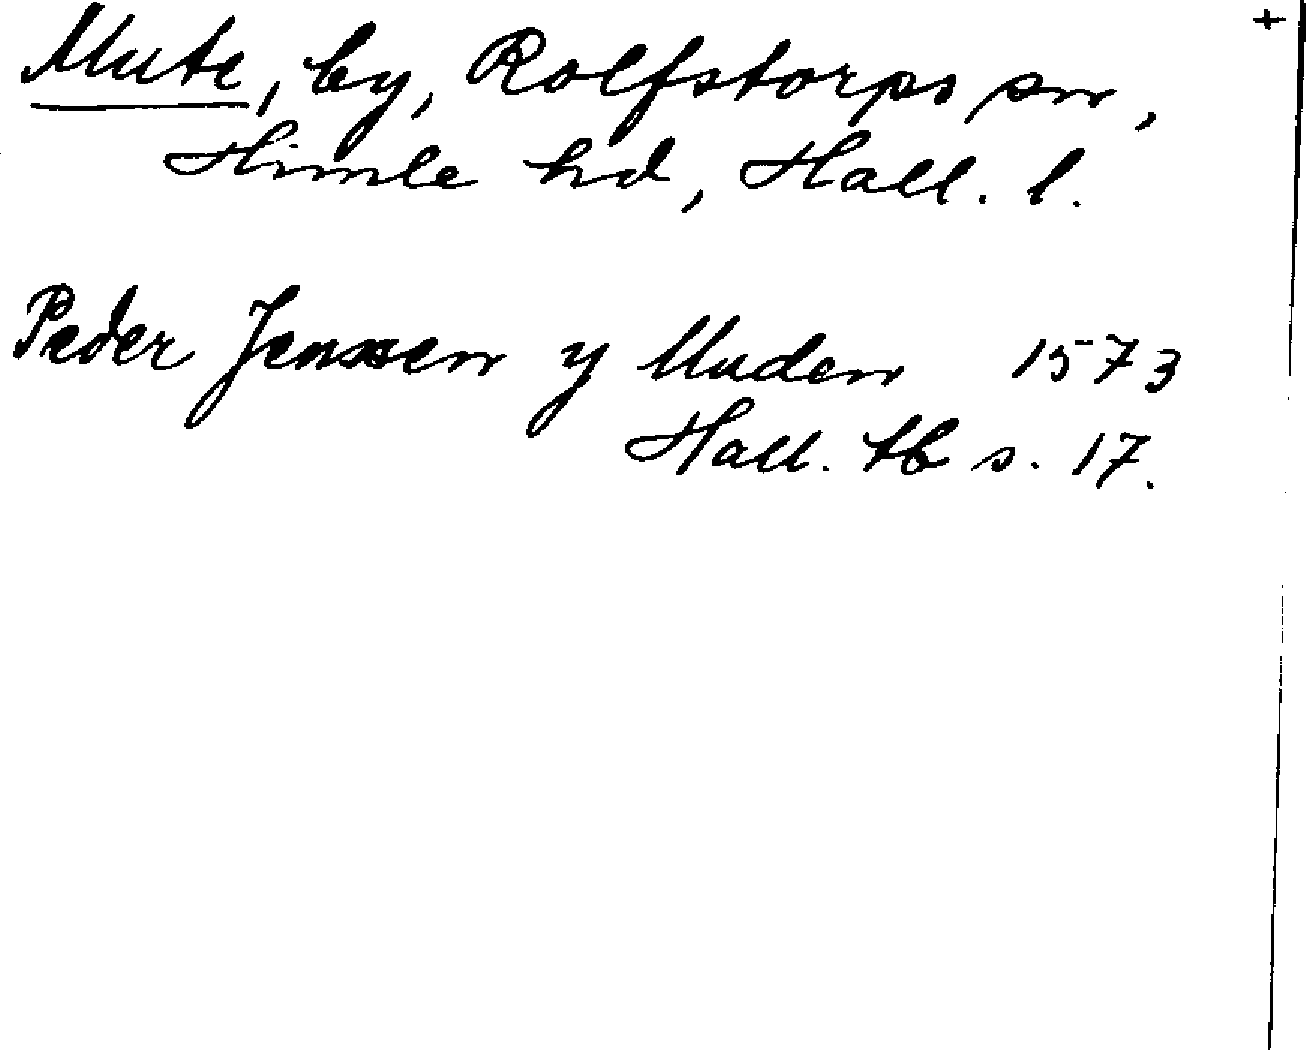 +
Mute, by, Rolfstorps sn,
Himle hd, Hall. l.
Peder Jenssen y Muden 1573
Hall. tb s. 17.